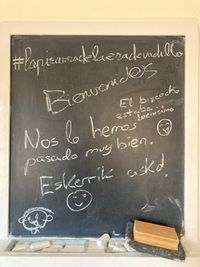 #lapizarradelaeradevadillo
Bienvenidos
El bizcocho
estaba
buenísimo
Nos lo hemos
pasado muy bien.
Eskerrik asko!